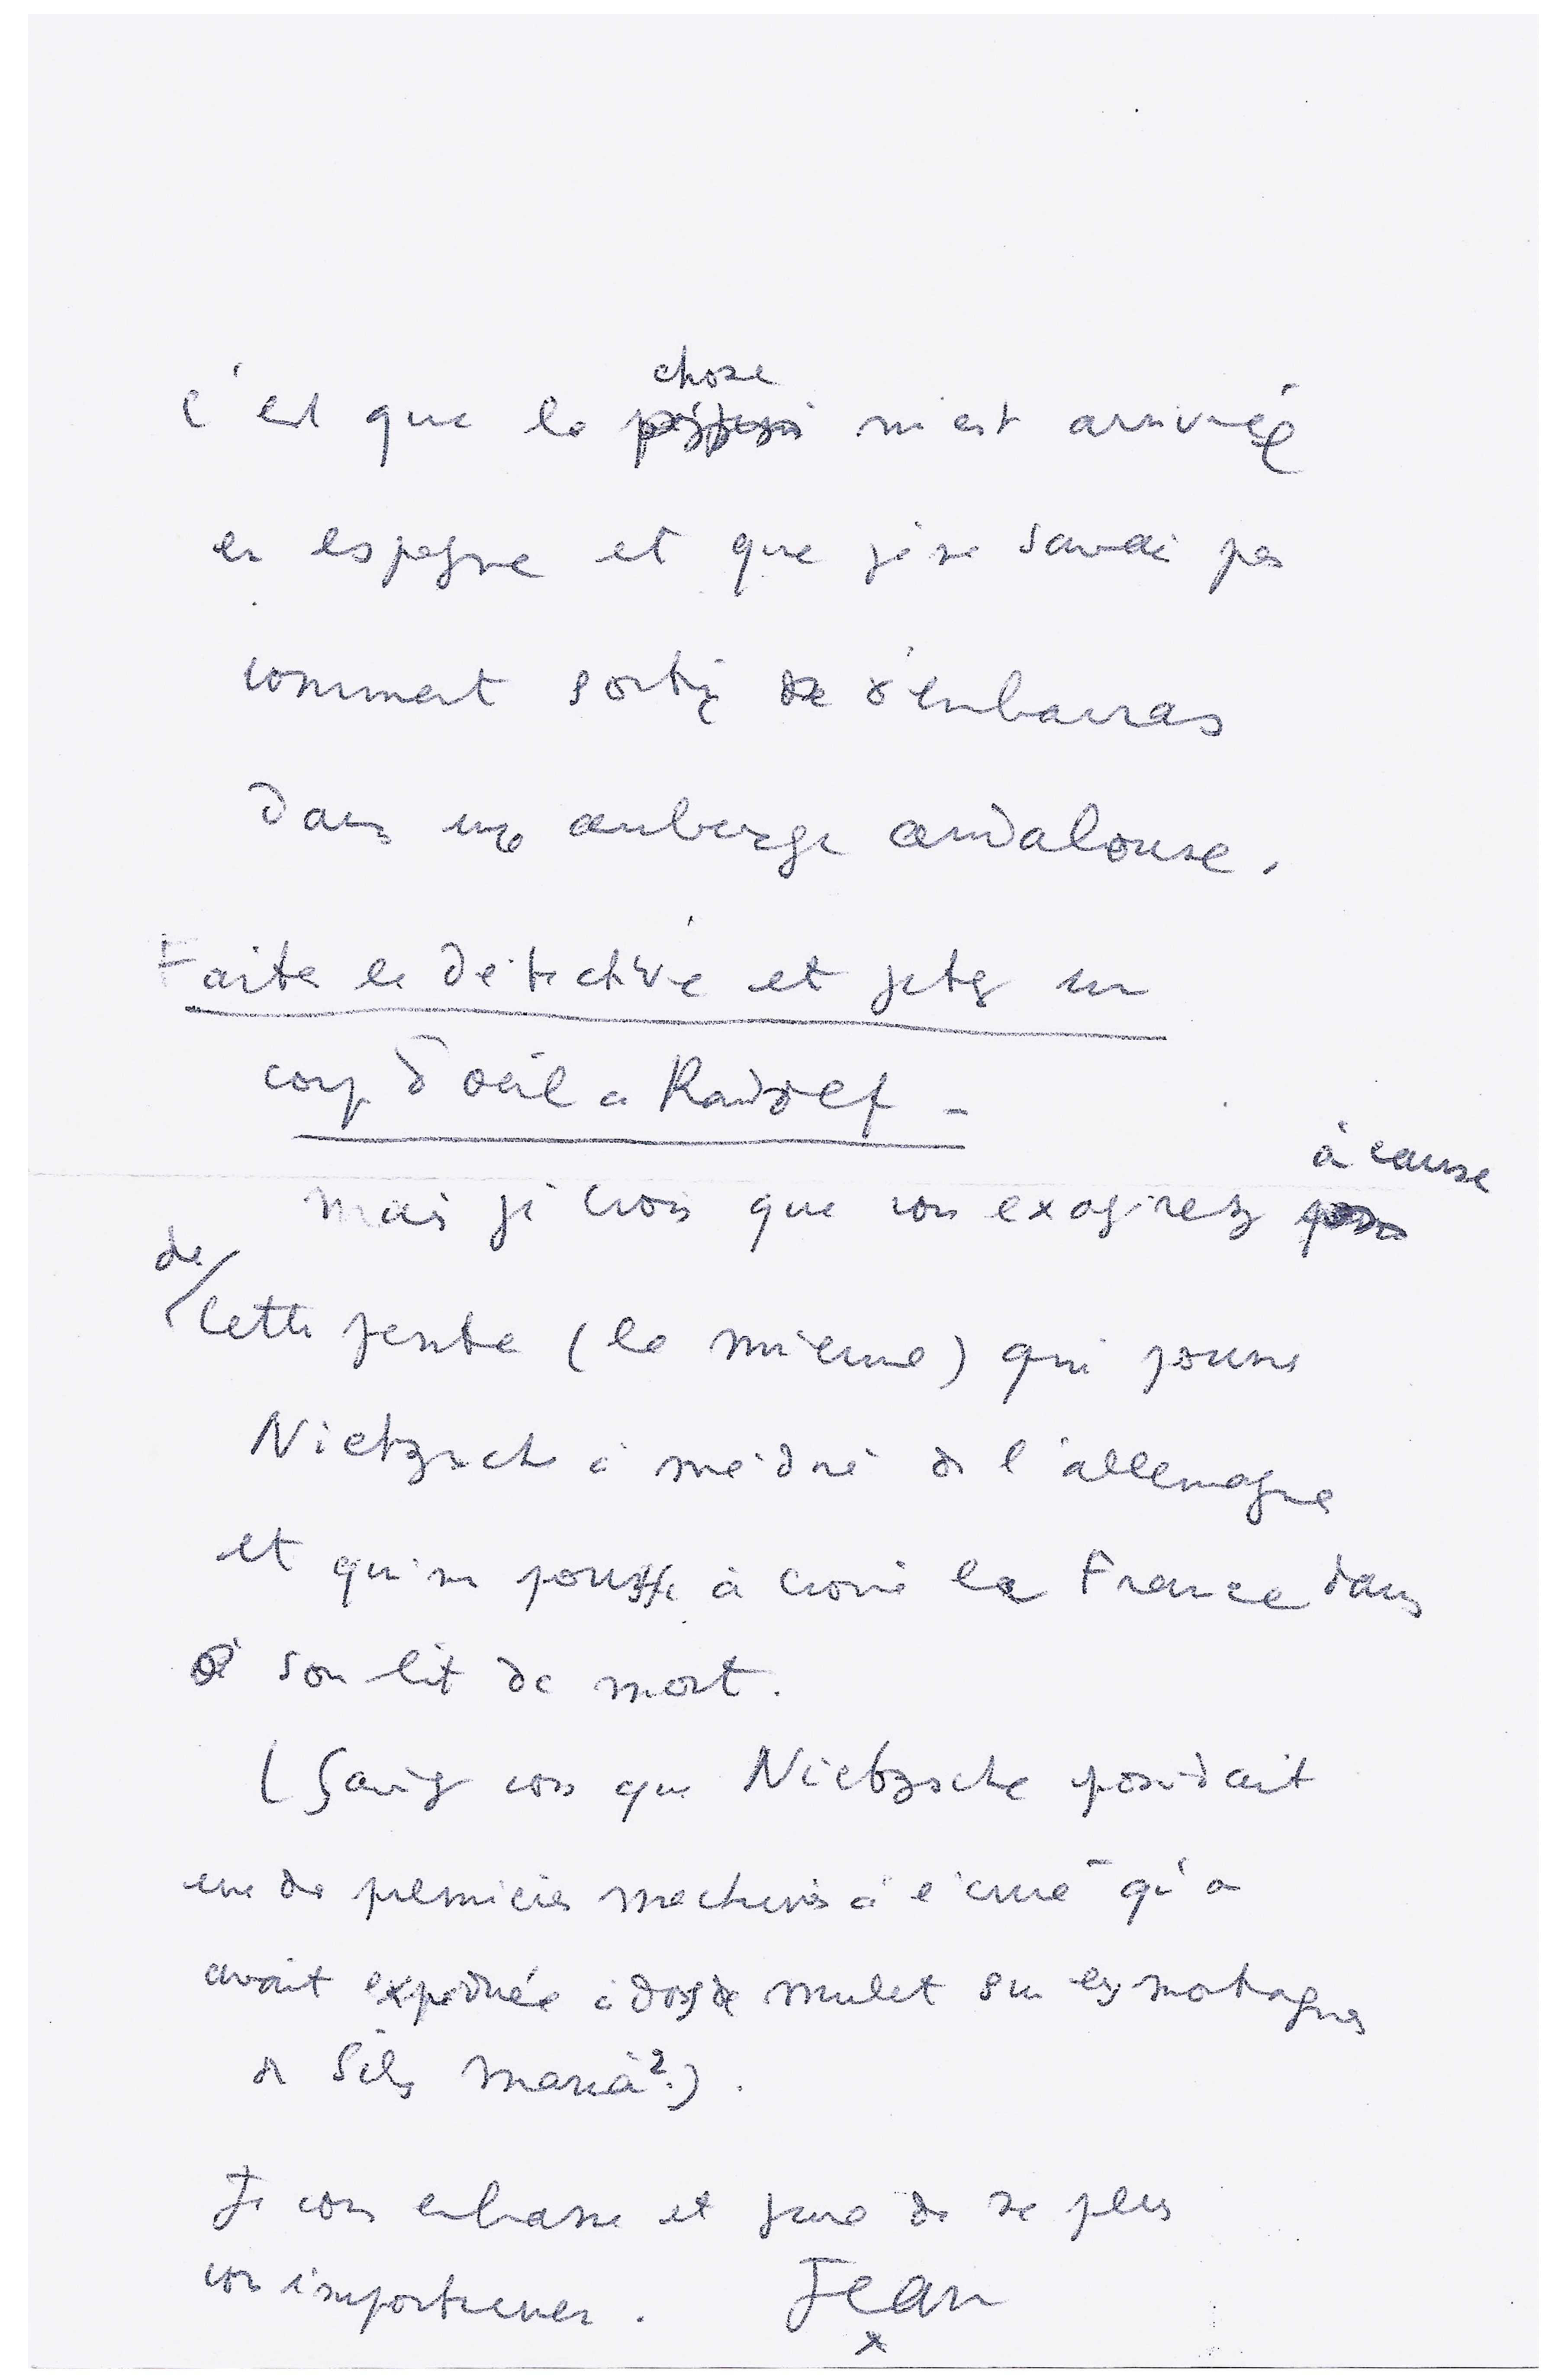 c'est que la chose m'est arrivée
en espagne et que je ne savais pas
comment sortir de d'embarras
dans une auberge andalouse.
Faites le détective et jetez un
coup d'œil a Raidolf -
mais je crois que vous exagérez à cause
de cette pente (la mienne) qui pousse
Nietzsche à médire de l'allemagne
et qui me pousse à croire la France dans
son lit de mort.
(Savez vous que Nietzsche possédait
une des premières machines à écrire qu'on
avait expédiée à dos de mulet sur les montagnes
de Sils Maria?).
Je vous embrasse et jure de ne plus
vous importuner. Jean